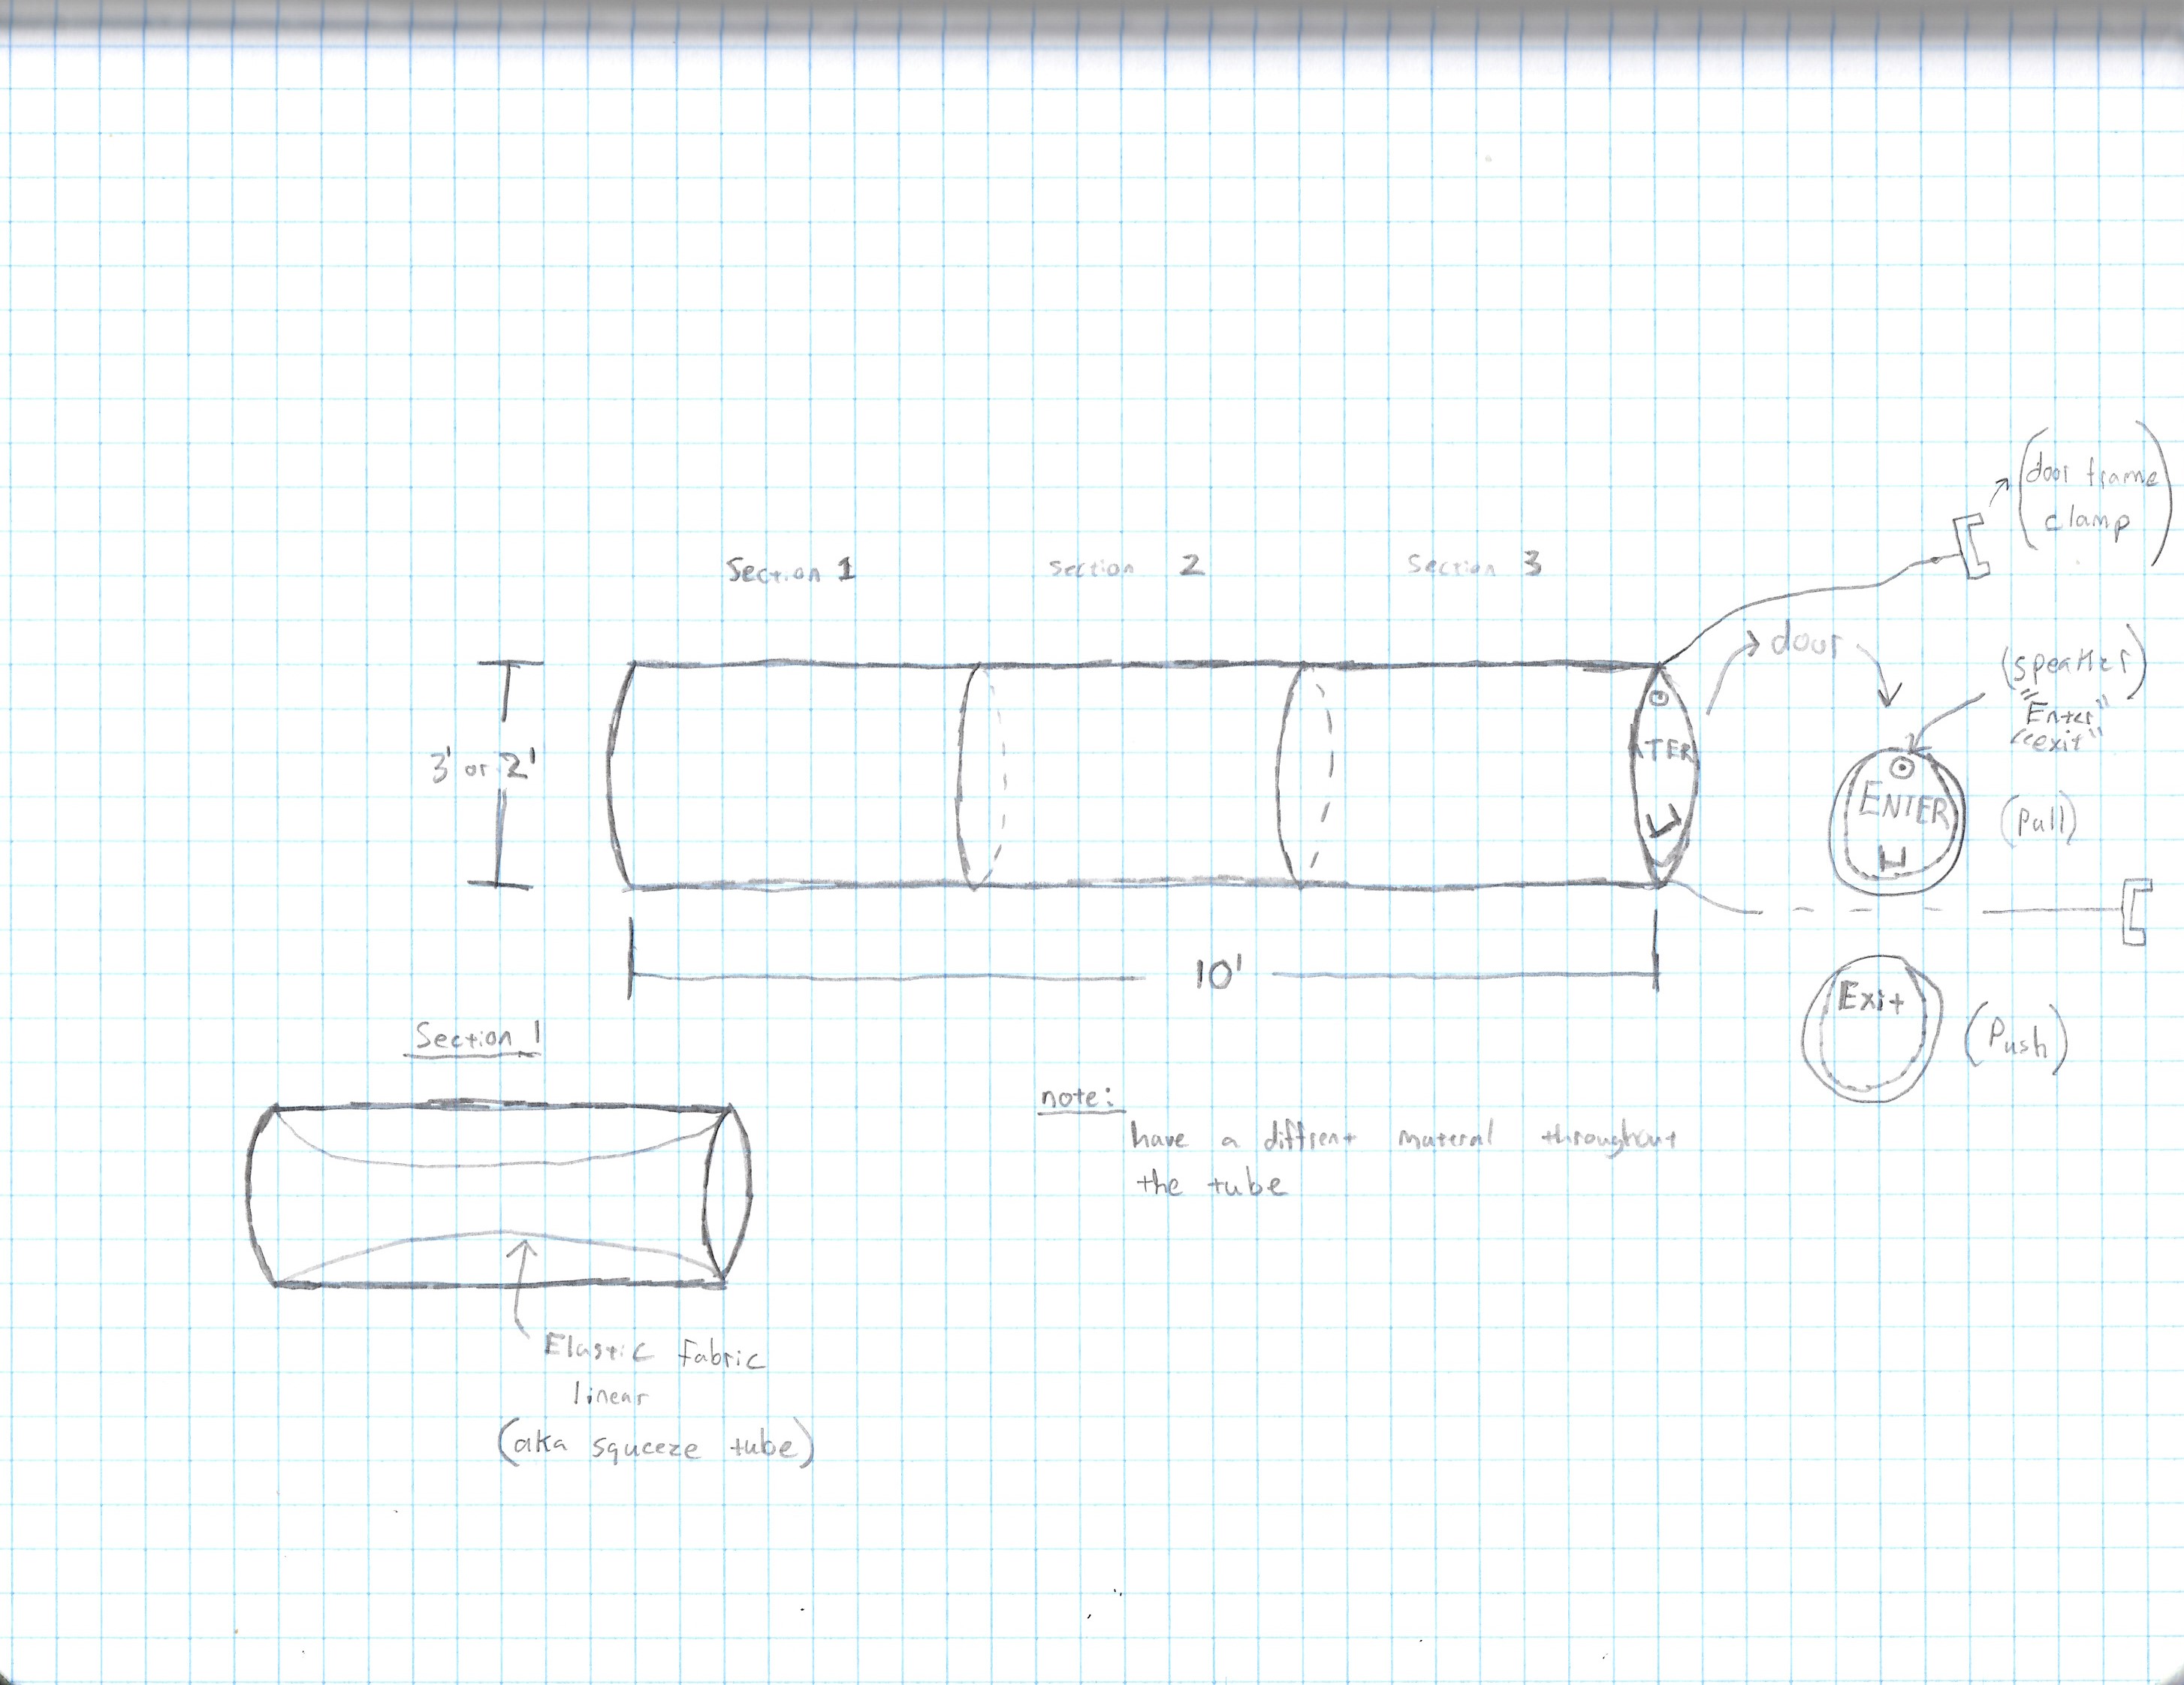 (door frame
clamp)
Section 1
section 2
section 3
door
(speaker)
"Enter"
"exit"
3' or 2'
ATER
ENTER
(Pull)
10'
Exit
(Push)
Section 1
note:
have a diffrent materal throughout
the tube
Elastic fabric
linear
(aka squeeze tube)